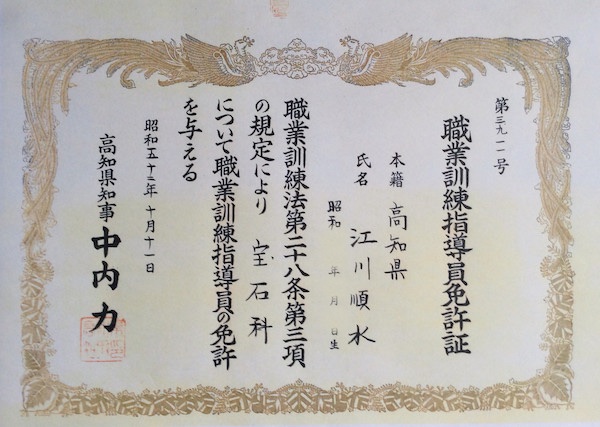 第三九一一号
職業訓練指導員免許証
本籍 高知県
氏名 江川順水
昭和 年 月 日生
職業訓練法第二十八条第三項
の規定により 宝石科
について職業訓練指導員の免許
を与える
昭和五十三年十月十一日
高知県知事 中内力